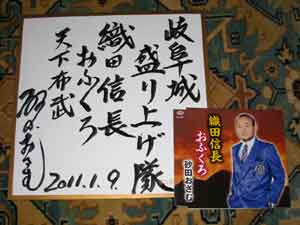 岐阜城
盛り上げ隊
織田信長
おふくろ
天下布武
2011.1.9.
織田信長
おふくろ
砂田おさむ